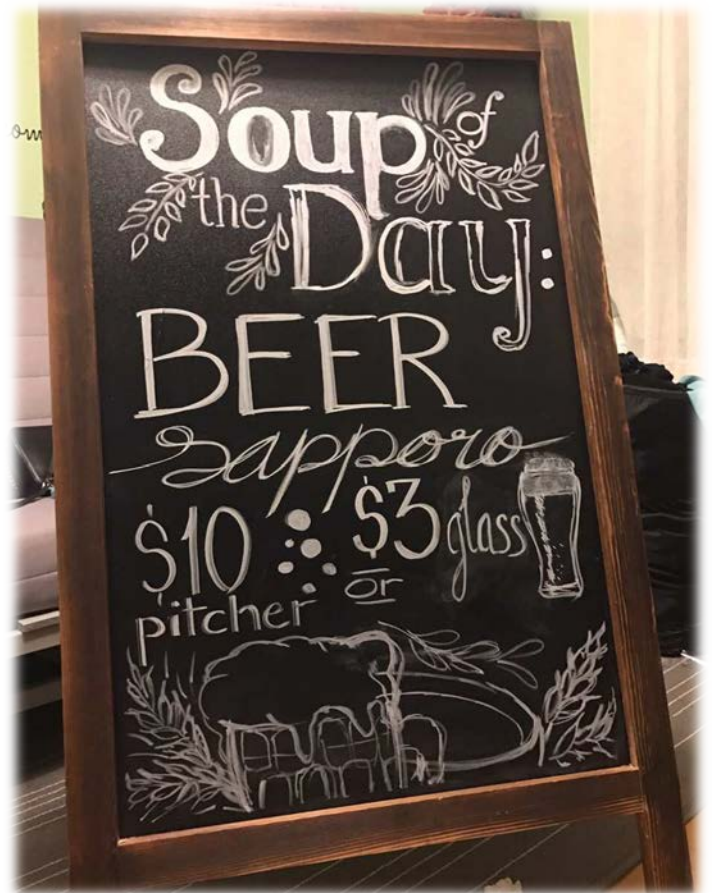 Soup of
the Day:
BEER
sapporo
$10 pitcher or $3 glass